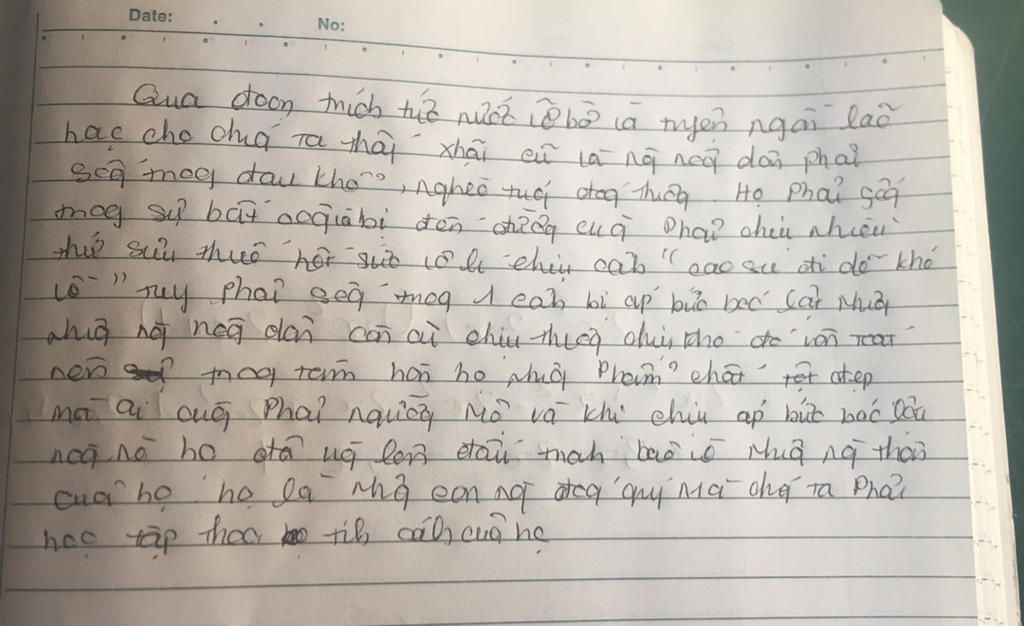 Date: No:
Qua đoạn trích tức nước vỡ bờ và truyện ngắn lão
hạc cho chúg ta thấy xhội cũ là ng nog dân phải
sốg trog đau khổ, nghèo túg đág thươg. Họ phải sốg
trog sự bất côg bị đến đườg cùg phải chịu nhiều
thứ sưu thuế hết sức vô lí chịu cảh " cao su đi dễ khó
về " Tuy phải sốg trog 1 cảh bị áp bức bóc lột nhưg
nhữg ng nog dân cần cù chịu thươg chịu khó đó vẫn toát
nên trog tâm hồn họ nhữg phẩm chất tốt đẹp
mà ai cũg phải ngưỡg mộ và khi chịu áp bức bóc lột
họ đã vùg lên đấu trah bảo vệ nhữg ng thân
của họ họ là nhữg con ng đág quý mà chúg ta phải
học tập theo tíh cách của họ